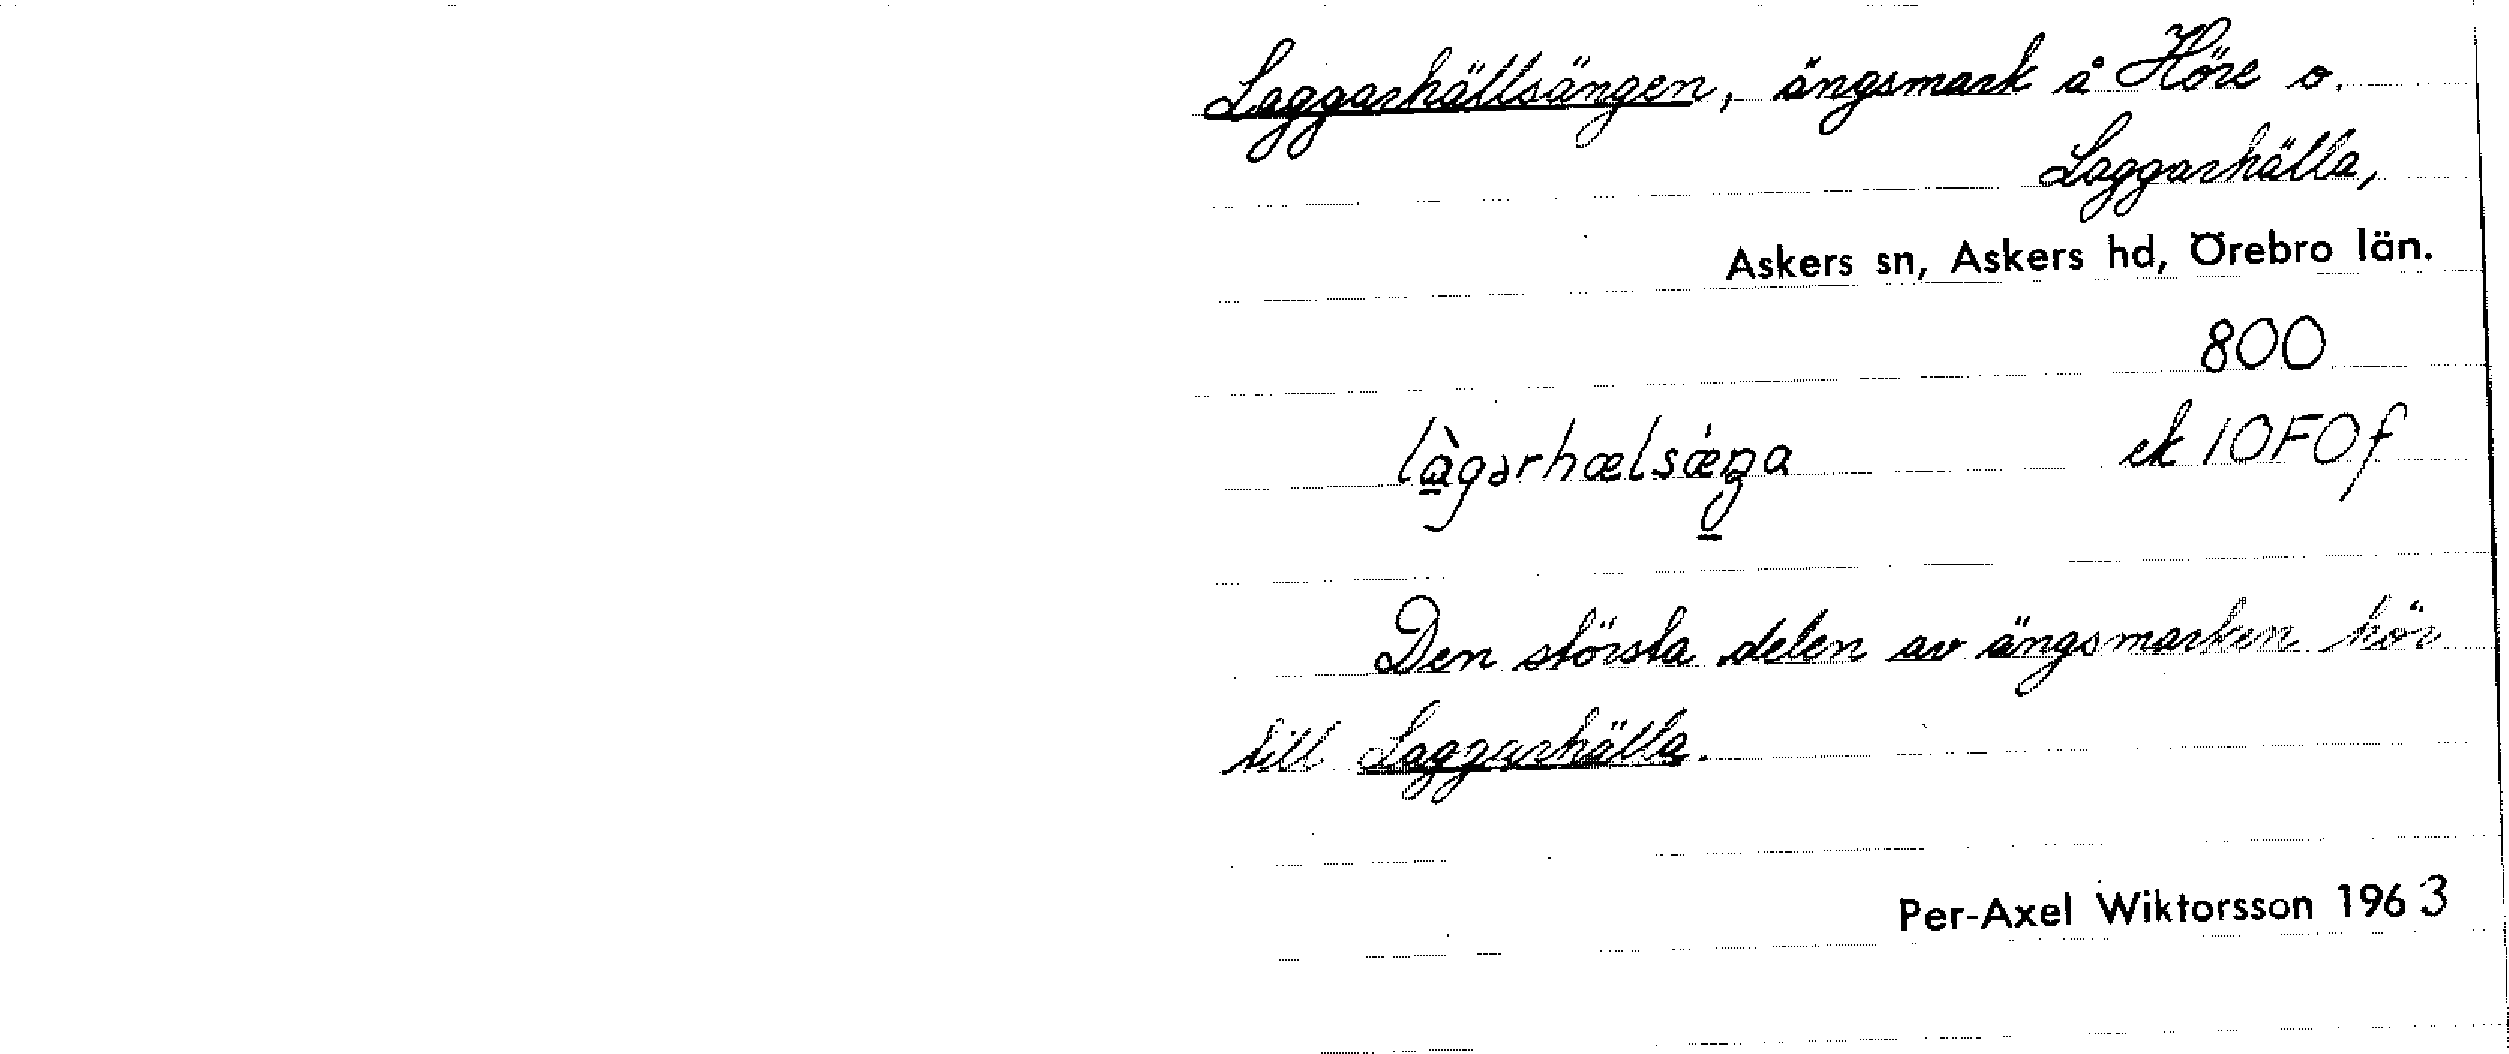 Laggarhällsängen, ängsmark å Höre o.
Laggarhälla,
Askers sn, Askers hd, Örebro län.
800
làgərhælsǽŋa ek 10F0f
Den största delen av ängsmarken hör
till Laggarhälla.
Per-Axel Wiktorsson 1963